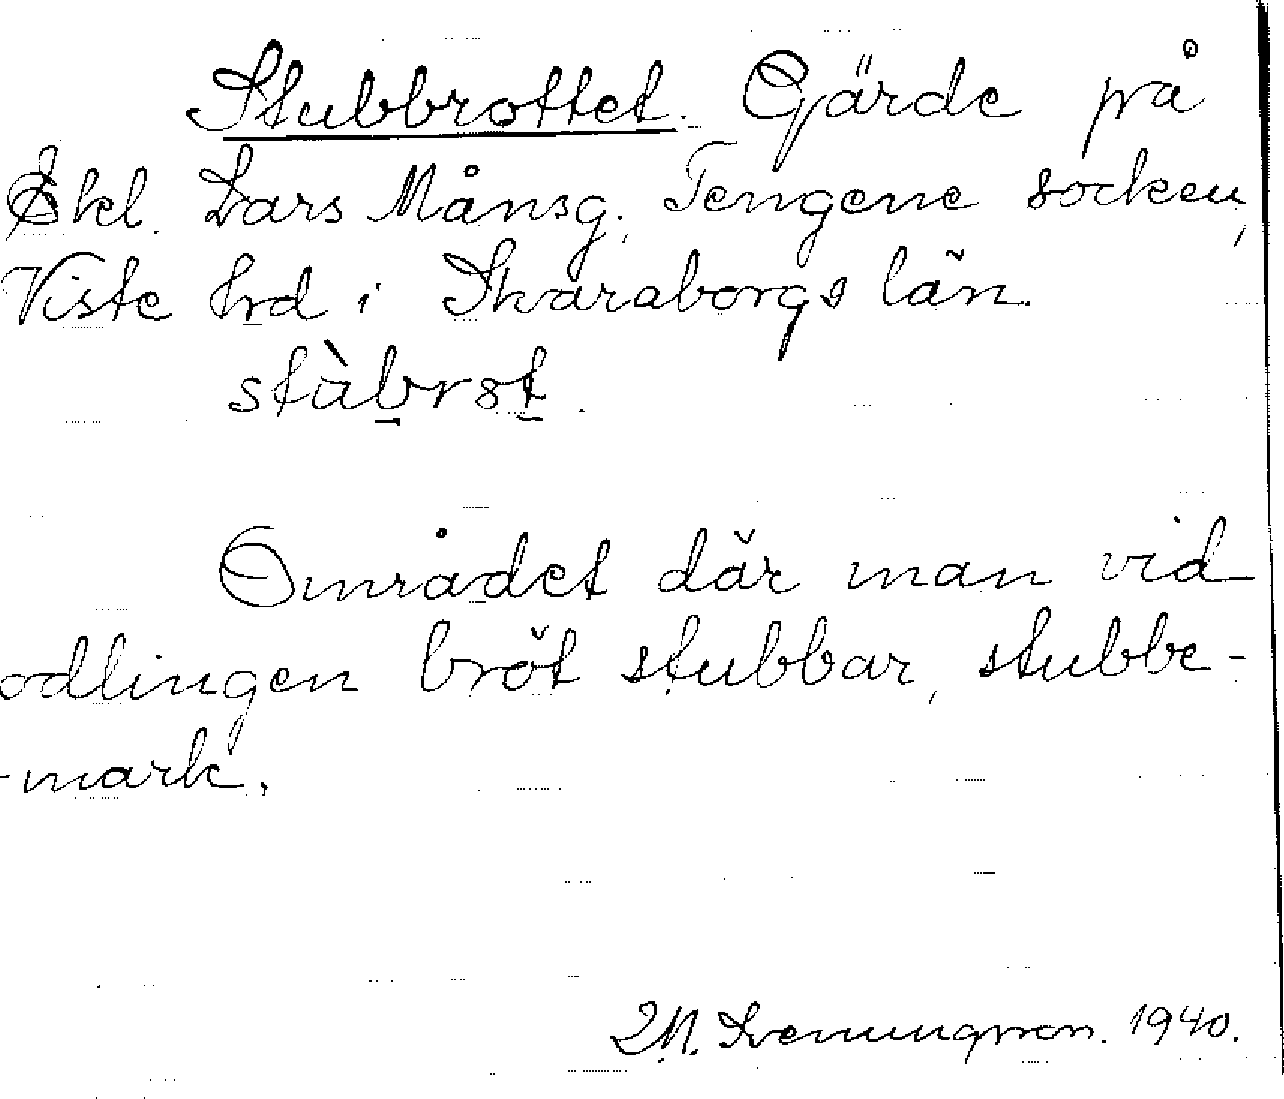 Stubbrottet. Gärde på
Skl. Lars Månsg. Tengene socken,
Viste hrd i Skaraborgs län.
stàbrst.
Området där man vid
odlingen bröt stubbar, stubbe-
-mark.
1940.